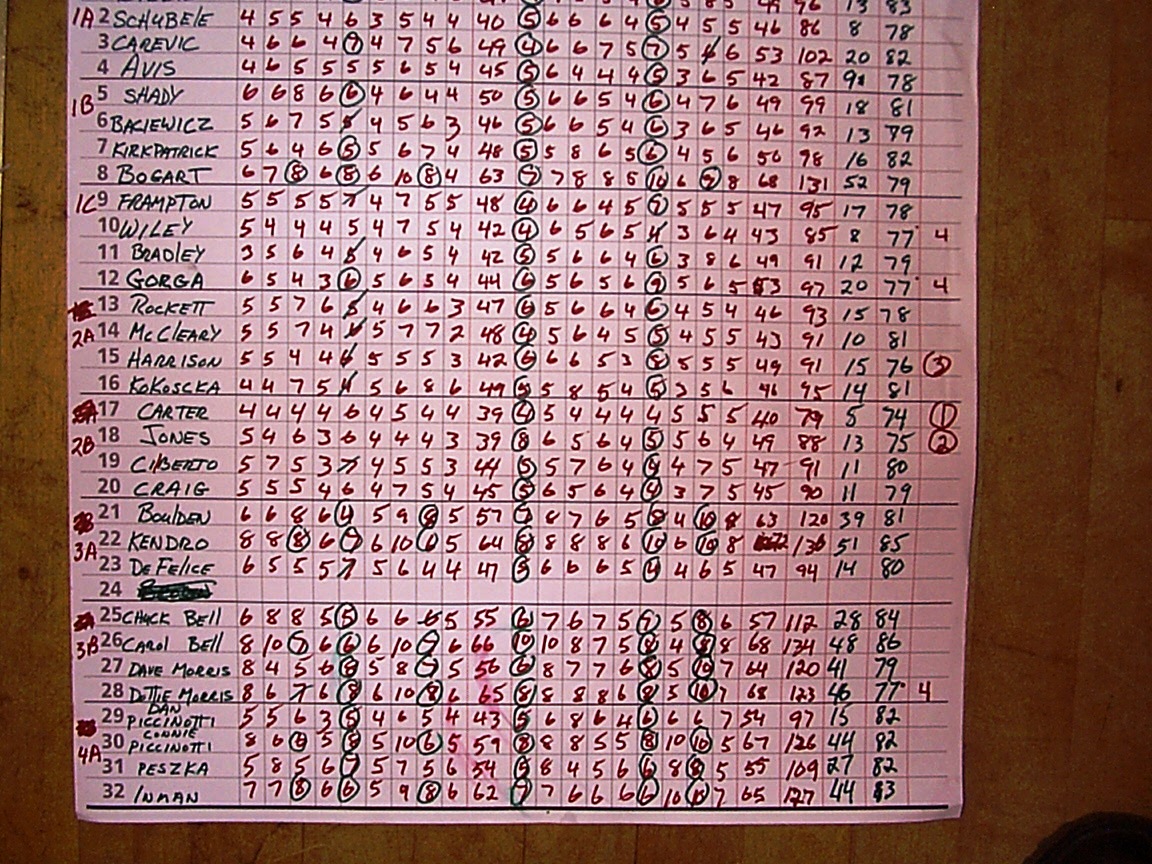 1A 2 SCHUBELE 4 5 5 4 6 3 5 4 4 40 5 6 6 6 4 5 4 5 5 46 86 8 78
3 CAREVIC 4 6 6 4 7 4 7 5 6 49 4 6 6 7 5 7 5 6 53 102 20 82
4 AVIS 4 6 5 5 5 5 6 5 4 45 5 6 4 4 4 5 3 6 5 42 87 9 78
1B 5 SHADY 6 6 8 6 6 4 6 4 4 50 5 6 6 5 4 6 4 7 6 49 99 18 81
6 BACIEWICZ 5 6 7 5 5 4 5 6 3 46 5 6 6 5 4 6 3 6 5 46 92 13 79
7 KIRKPATRICK 5 6 4 6 5 5 6 7 4 48 5 5 8 6 5 6 4 5 6 50 98 16 82
8 BOGART 6 7 8 6 8 6 10 8 4 63 7 7 8 8 5 10 6 9 8 68 131 52 79
1C 9 FRAMPTON 5 5 5 5 7 4 7 5 5 48 4 6 6 4 5 7 5 5 5 47 95 17 78
10 WILEY 5 4 4 4 5 4 7 5 4 42 4 6 5 6 5 4 3 6 4 43 85 8 77 4
11 BRADLEY 3 5 6 4 5 4 6 5 4 42 5 5 6 6 4 6 3 8 6 49 91 12 79
12 GORGA 6 5 4 3 6 5 6 5 4 44 6 5 6 5 6 9 5 6 5 53 97 20 77 4
13 ROCKETT 5 5 7 6 5 4 6 6 3 47 6 5 6 6 4 6 4 5 4 46 93 15 78
2A 14 MCCLEARY 5 5 7 4 6 5 7 7 2 48 4 5 6 4 5 5 4 5 5 43 91 10 81
15 HARRISON 5 5 4 4 6 5 5 5 3 42 6 6 6 5 3 8 5 5 5 49 91 15 76 3
16 KOKOSCKA 4 4 7 5 4 5 6 8 6 49 5 5 8 5 4 5 3 5 6 46 95 14 81
17 CARTER 4 4 4 4 6 4 5 4 4 39 4 5 4 4 4 4 5 5 5 40 79 5 74 1
2B 18 JONES 5 4 6 3 6 4 4 4 3 39 8 6 5 6 4 5 5 6 4 49 88 13 75 2
19 CILBERTO 5 7 5 3 7 4 5 5 3 44 5 5 7 6 4 4 4 7 5 47 91 11 80
20 CRAIG 5 5 5 4 6 4 7 5 4 45 5 6 5 6 4 4 3 7 5 45 90 11 79
21 BOULDEN 6 6 8 6 4 5 9 8 5 57 7 8 7 6 5 8 4 10 8 63 120 39 81
3A 22 KENDRO 8 8 8 6 7 6 10 6 5 64 8 8 8 8 6 10 6 10 8 136 51 85
23 DEFELICE 6 5 5 5 7 5 6 4 4 47 5 6 6 6 5 4 4 6 5 47 94 14 80
24
25 CHUCK BELL 6 8 8 5 5 6 6 6 5 55 6 7 6 7 5 7 5 8 6 57 112 28 84
3B 26 CAROL BELL 8 10 7 6 6 6 10 7 6 66 10 10 8 7 5 8 4 8 8 68 134 48 86
27 DAVE MORRIS 8 4 5 6 8 5 8 7 5 56 6 8 7 7 6 8 5 10 7 64 120 41 79
28 DOTTIE MORRIS 8 6 7 6 8 6 10 8 6 65 8 8 8 8 6 8 5 10 7 68 123 46 77 4
29 DAN PICCINOTTI 5 5 6 3 5 4 6 5 4 43 5 6 8 6 4 6 6 6 7 54 97 15 82
4A 30 CONNIE PICCINOTTI 8 6 6 5 8 5 10 6 5 59 8 8 8 5 5 8 10 10 5 67 126 44 82
31 PESZKA 5 8 5 6 7 5 7 5 6 54 5 8 4 5 6 6 8 8 5 55 109 27 82
32 INMAN 7 7 8 6 6 5 9 8 6 62 7 7 6 6 6 6 10 10 7 65 127 44 83